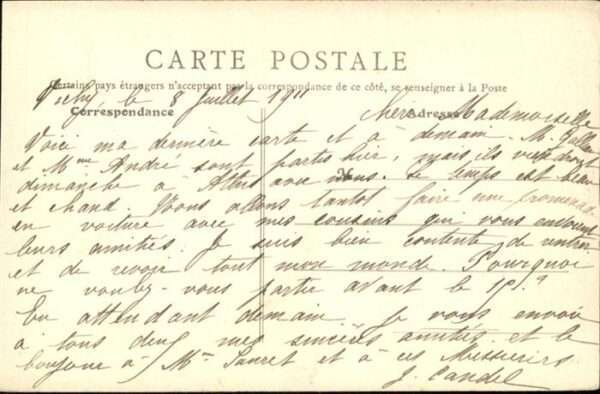 CARTE POSTALE
Certains pays étrangers n'acceptant pas la correspondance de ce côté, se renseigner à la Poste
Vichy le 8 Juillet 1911
Correspondance
Adresse
Chère Mademoiselle
Voici ma dernière carte et à demain. M.
et Mme André sont partis hier, mais ils viendront
dimanche à avec nous. Le temps est beau
et chaud. Nous allons tantôt faire une promenade
en voiture avec mes cousins qui vous envoient
leurs amitiés. Je suis bien contente de
et de revoir tout mon monde. Pourquoi
ne voulez-vous partir avant le 15?
En attendant demain je vous envoie
à tous deux mes sincères amitiés et le
bonjour à Me et à ces Messieurs
J. Candel